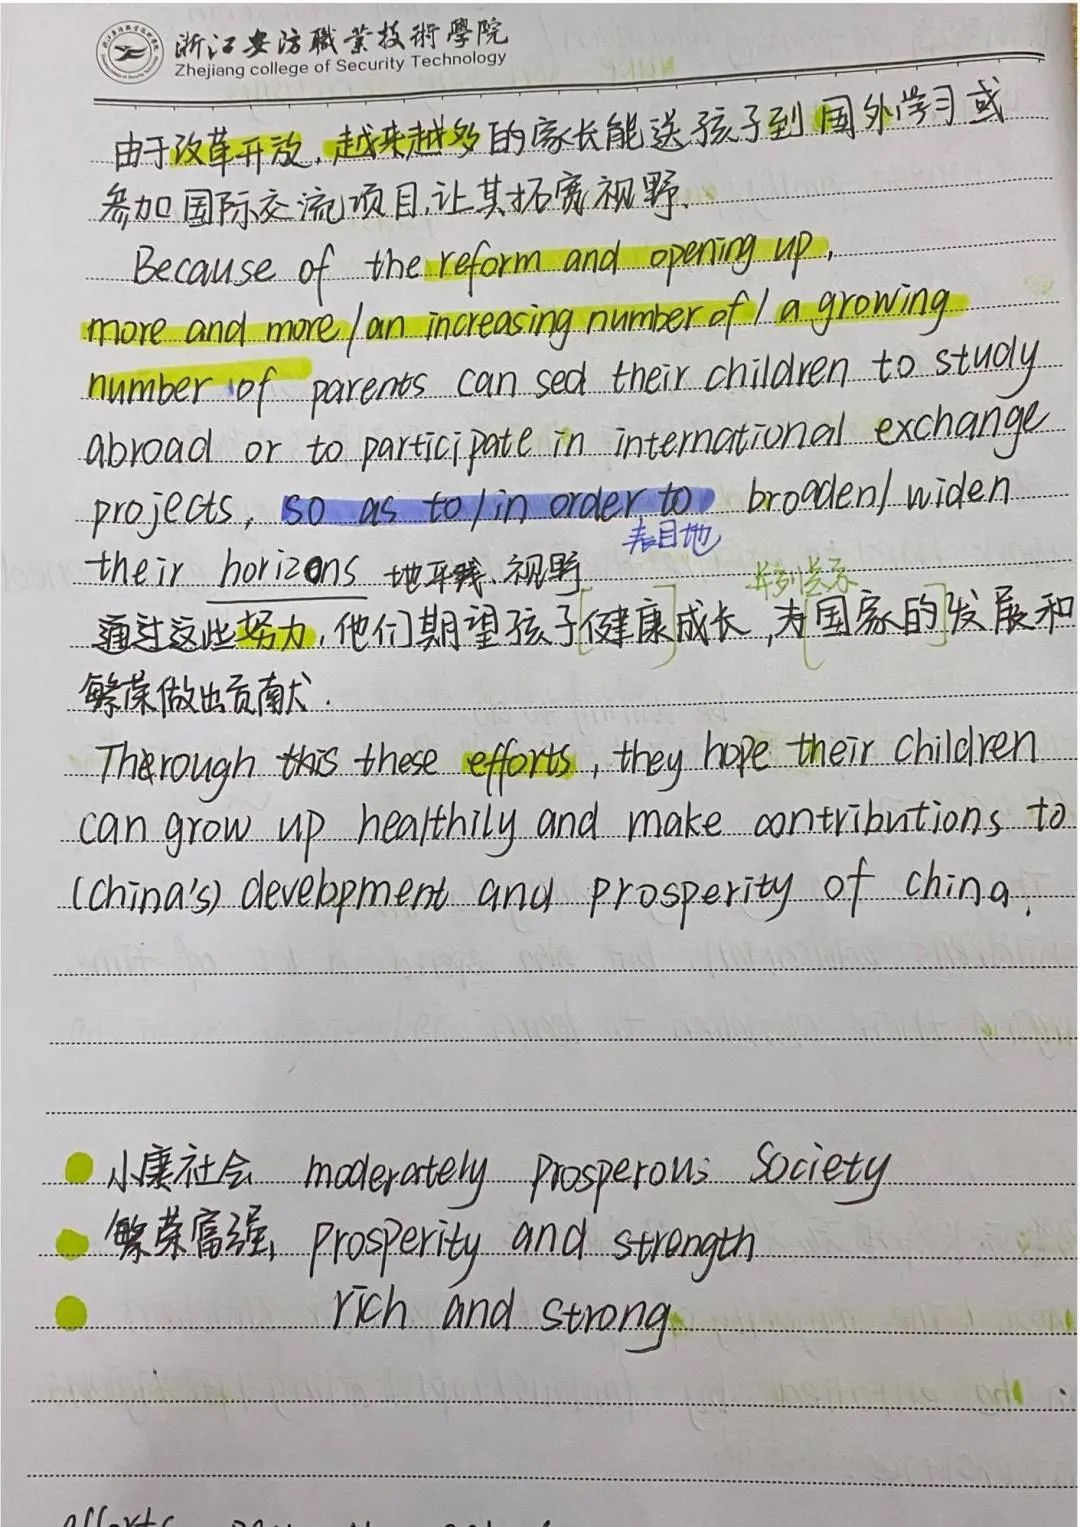 浙江安防職業技術學院
Zhejiang college of Security Technology
由于改革开放，越来越多的家长能送孩子到国外学习或
参加国际交流项目，让其拓宽视野.
Because of the reform and opening up,
more and more/an increasing number of/a growing
number of parents can sed their children to study
abroad or to participate in international exchange
projects, so as to/in order to broaden/widen
表目地
their horizons 地平线、视野
并列关系
通过这些努力，他们期望孩子[健康]成长，为[国家的]发展和
繁荣做出贡献.
Therough this these efforts, they hope their children
can grow up healthily and make contributions to
(china's) development and prosperity of china.
小康社会 moderately prosperous society
繁荣富强, prosperity and strength
rich and strong